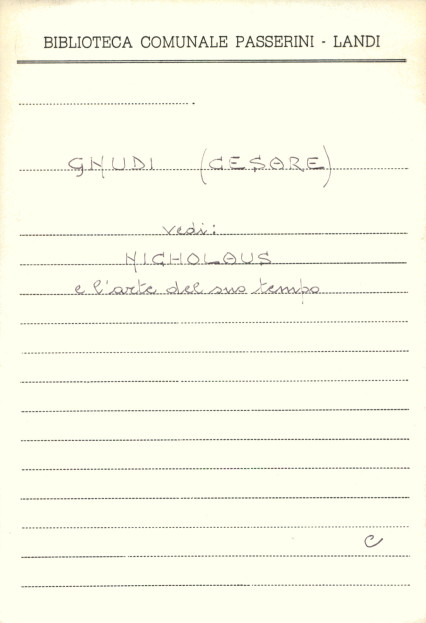 BIBLIOTECA COMUNALE PASSERINI - LANDI
GNUDI (CESARE)
vedi:
NICHOLAUS
e l'arte del suo tempo
C